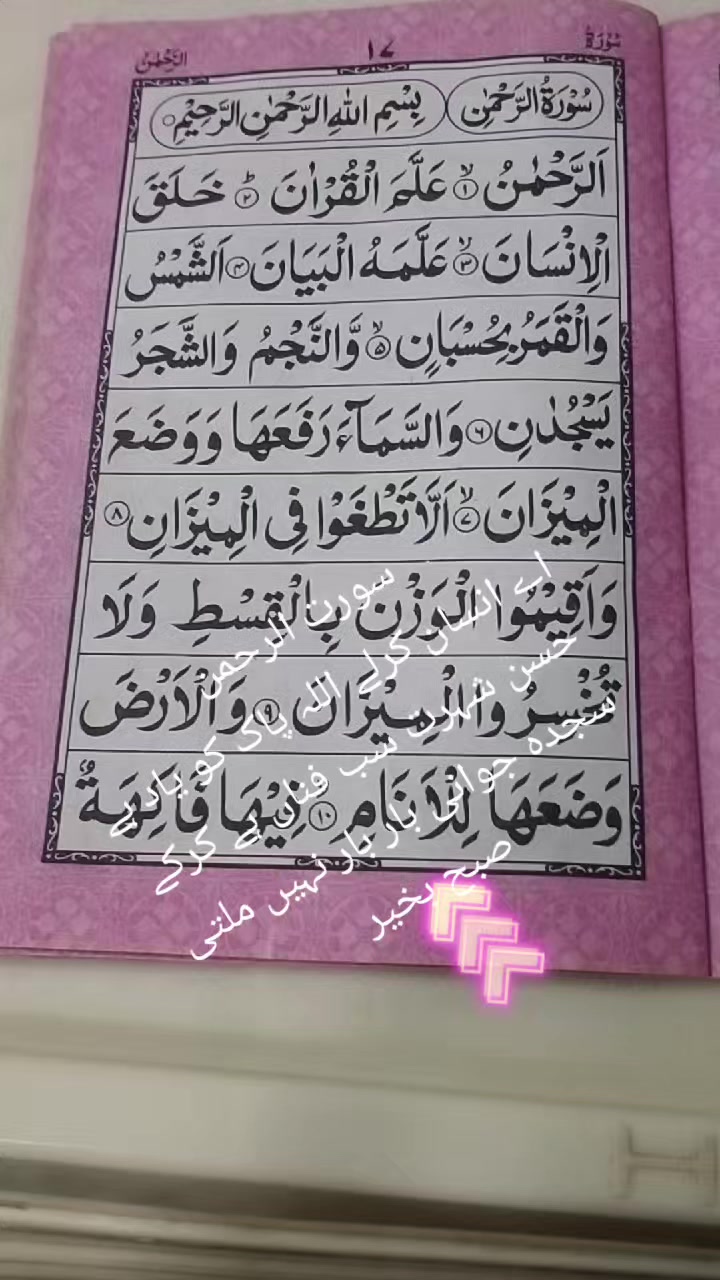 سُوْرَةُ ١٧ اَلرَّحْمٰنُ
سُوْرَةُ الرَّحْمٰنِ بِسْمِ اللهِ الرَّحْمٰنِ الرَّحِيْمِ
اَلرَّحْمٰنُ ۙ﴿۱﴾ عَلَّمَ الْقُرْاٰنَ ؕ﴿۲﴾ خَلَقَ
الْاِنْسَانَ ۙ﴿۳﴾ عَلَّمَهُ الْبَيَانَ ﴿۴﴾ اَلشَّمْسُ
وَالْقَمَرُ بِحُسْبَانٍ ۙ﴿۵﴾ وَّالنَّجْمُ وَالشَّجَرُ
يَسْجُدٰنِ ﴿۶﴾ وَالسَّمَآءَ رَفَعَهَا وَوَضَعَ
الْمِيْزَانَ ۙ﴿۷﴾ اَلَّا تَطْغَوْا فِى الْمِيْزَانِ ﴿۸﴾
وَاَقِيْمُوا الْوَزْنَ بِالْقِسْطِ وَلَا
تُخْسِرُوا الْمِيْزَانَ ﴿۹﴾ وَالْاَرْضَ
وَضَعَهَا لِلْاَنَامِ ﴿۱۰﴾ فِيْهَا فَاكِهَةٌ
سورت الرحمن
اے انسان کرلے اللہ پاک کو یارے
حسن شہرت سب فنا ہے کرکے
سجدہ جوانی بار بار نہیں ملتی
صبح بخیر